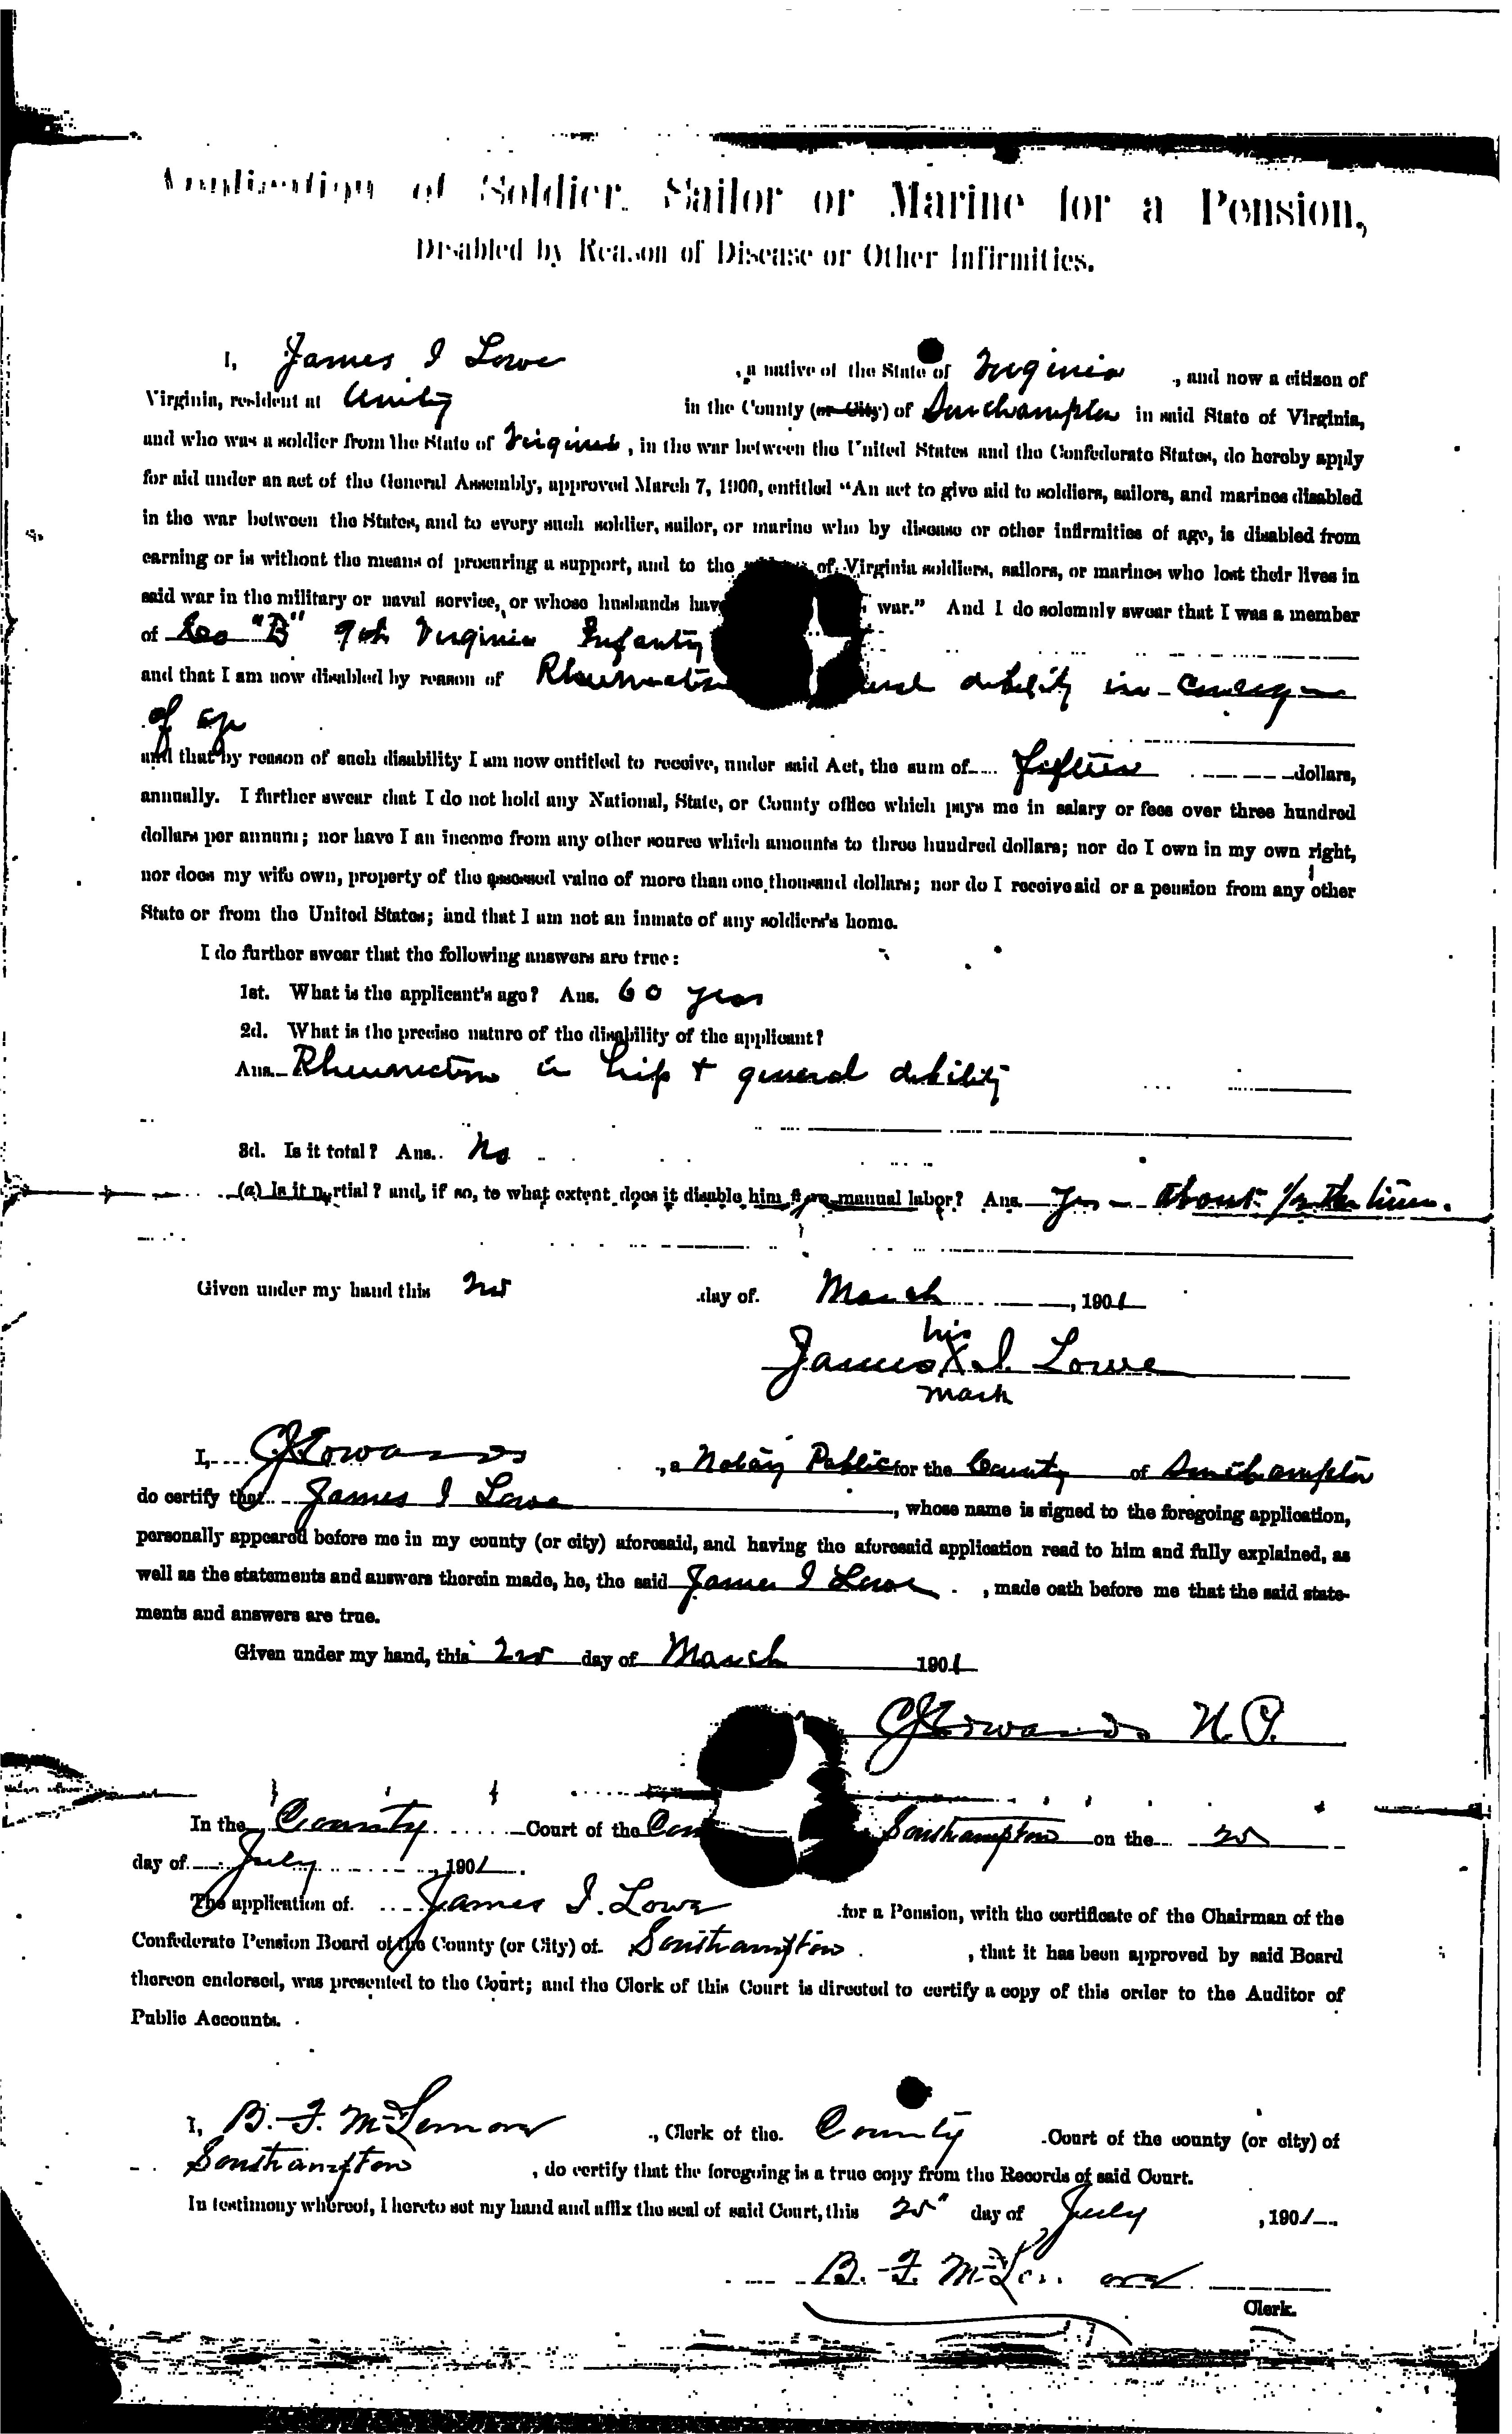 Application of Soldier, Sailor or Marine for a Pension,
Disabled by Reason of Disease or Other Infirmities.
I, James I Lowe , a native of the State of Virginia , and now a citizen of
Virginia, resident at Unity in the County (or City) of Southampton in said State of Virginia,
and who was a soldier from the State of Virginia , in the war between the United States and the Confederate States, do hereby apply
for aid under an act of the General Assembly, approved March 7, 1900, entitled “An act to give aid to soldiers, sailors, and marines disabled
in the war between the States, and to every such soldier, sailor, or marine who by disease or other infirmities of age, is disabled from
earning or is without the means of procuring a support, and to the of Virginia soldiers, sailors, or marines who lost their lives in
said war in the military or naval service, or whose husbands have war.” And I do solemnly swear that I was a member
of Co "B" 9th Virginia Infantry
and that I am now disabled by reason of debility in
of age
and that by reason of such disability I am now entitled to receive, under said Act, the sum of fifteen dollars,
annually. I further swear that I do not hold any National, State, or County office which pays me in salary or fees over three hundred
dollars per annum; nor have I an income from any other source which amounts to three hundred dollars; nor do I own in my own right,
nor does my wife own, property of the assessed value of more than one thousand dollars; nor do I receive aid or a pension from any other
State or from the United States; and that I am not an inmate of any soldiers's home.
I do further swear that the following answers are true:
1st. What is the applicant's age? Ans. 60 years
2d. What is the precise nature of the disability of the applicant?
Ans. Rheumatism in hip + general debility
3d. Is it total? Ans. No
(a) Is it partial? and, if so, to what extent does it disable him from manual labor? Ans. Yes - About 1/2 the time.
Given under my hand this 2nd day of March , 1901
his
James X I. Lowe
mark
I, , a Notary Public for the County of Southampton
do certify that James I Lowe , whose name is signed to the foregoing application,
personally appeared before me in my county (or city) aforesaid, and having the aforesaid application read to him and fully explained, as
well as the statements and answers therein made, he, the said James I Lowe , made oath before me that the said state-
ments and answers are true.
Given under my hand, this 2nd day of March 1901
N. P.
In the County Court of the Southampton on the
day of July , 1901.
The application of James I. Lowe for a Pension, with the certificate of the Chairman of the
Confederate Pension Board of the County (or City) of Southampton , that it has been approved by said Board
thereon endorsed, was presented to the Court; and the Clerk of this Court is directed to certify a copy of this order to the Auditor of
Public Accounts.
I, B. F. McLemore , Clerk of the County Court of the county (or city) of
Southampton , do certify that the foregoing is a true copy from the Records of said Court.
In testimony whereof, I hereto set my hand and affix the seal of said Court, this day of July , 1901
B. F. McLemore
Clerk.